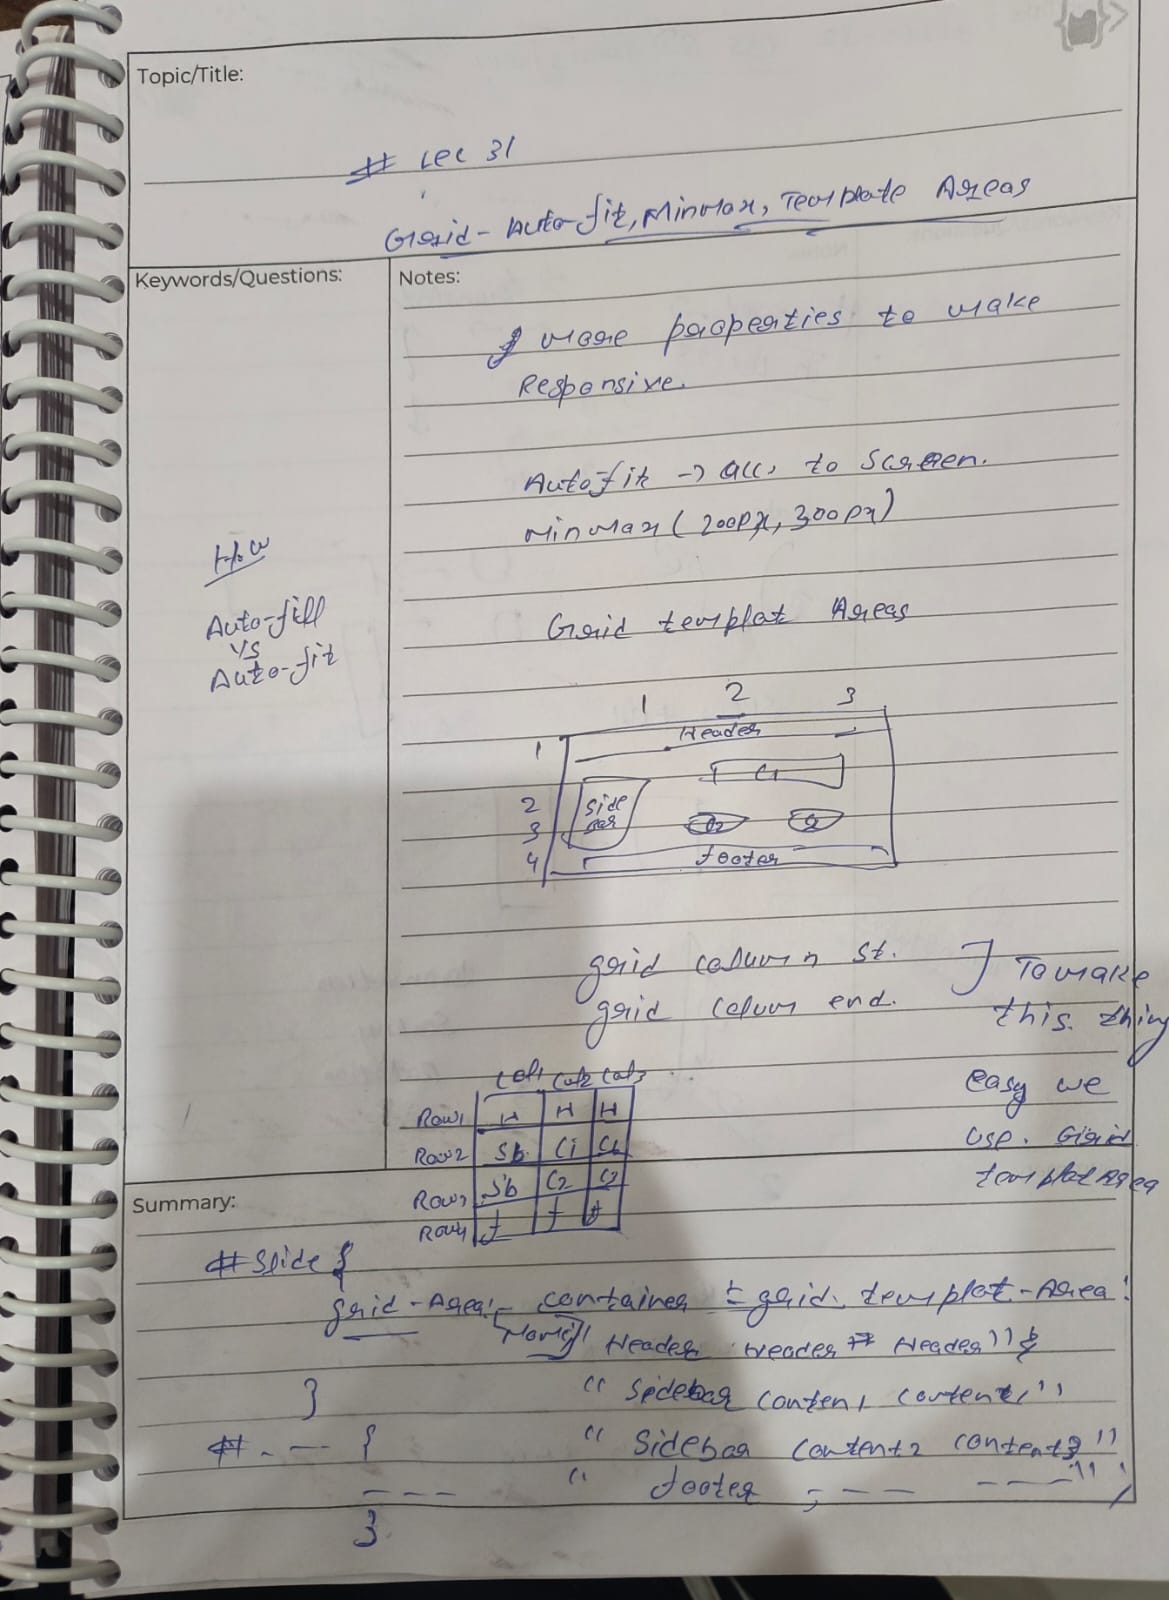 Topic/Title:
# Lec 31
Grid - Auto-fit, MinMax, Template Areas
Keywords/Questions:
Notes:
more properties to make
Responsive.
Autofit -> acc. to Screen.
MinMax (200px, 300px)
H.W
Auto-fill
vs
Auto-fit
Grid templat Areas
1 2 3
1 Header
C1
2 Side
3 bar C2
4 footer
grid column st. ] To make
grid colum end. this thing
easy we
use. Grid
templat Area
Col1 Col2 Col3
Row1 H H H
Row2 Sb C1 C1
Row3 Sb C2 C3
Row4 f f f
Summary:
# Slide {
grid-Area: container = grid. templat-Area:
Name Header Header Header"
} "Sidebar Content Content"
# . -- { "Sidebar Content2 Content3"
--- "footer --- ---";
}